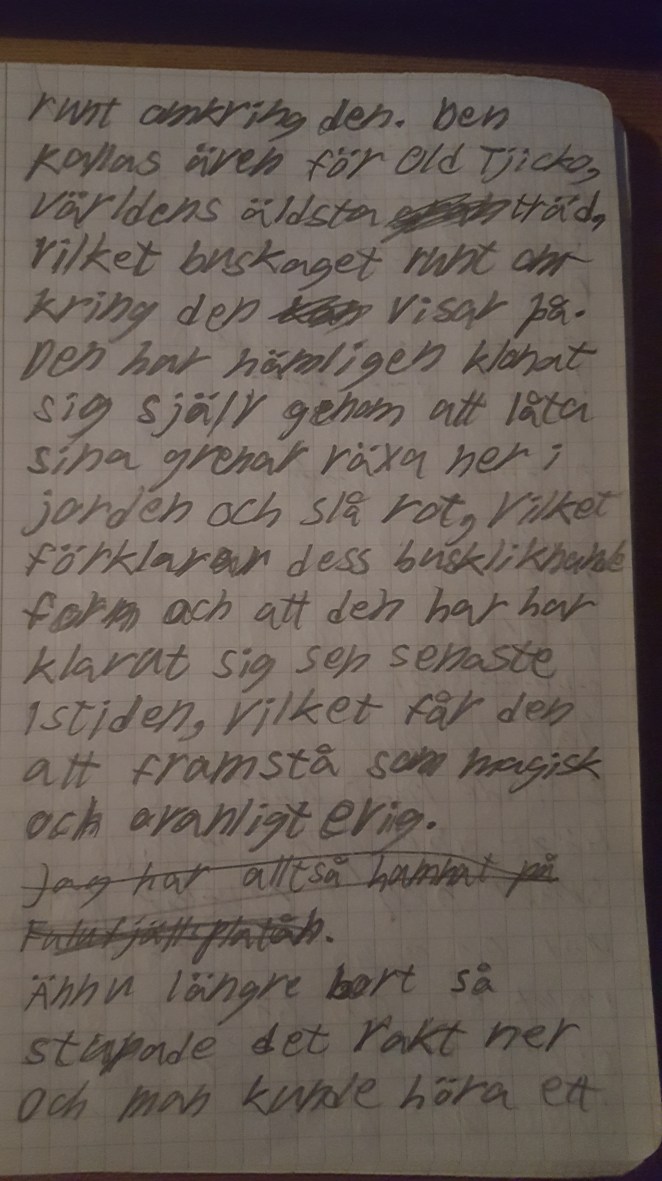 runt omkring den. Den
kallas även för Old Tjicko,
världens äldsta träd,
vilket buskaget runt om-
kring den visar på.
Den har nämligen klonat
sig själv genom att låta
sina grenar växa ner i
jorden och slå rot, vilket
förklarar dess buskliknande
form och att den har har
klarat sig sen senaste
istiden, vilket får den
att framstå som magisk
och ovanligt evig.
Jag har alltså hamnat på
Fulufjällsplatån.
Ännu längre bort så
stupade det rakt ner
och man kunde höra ett